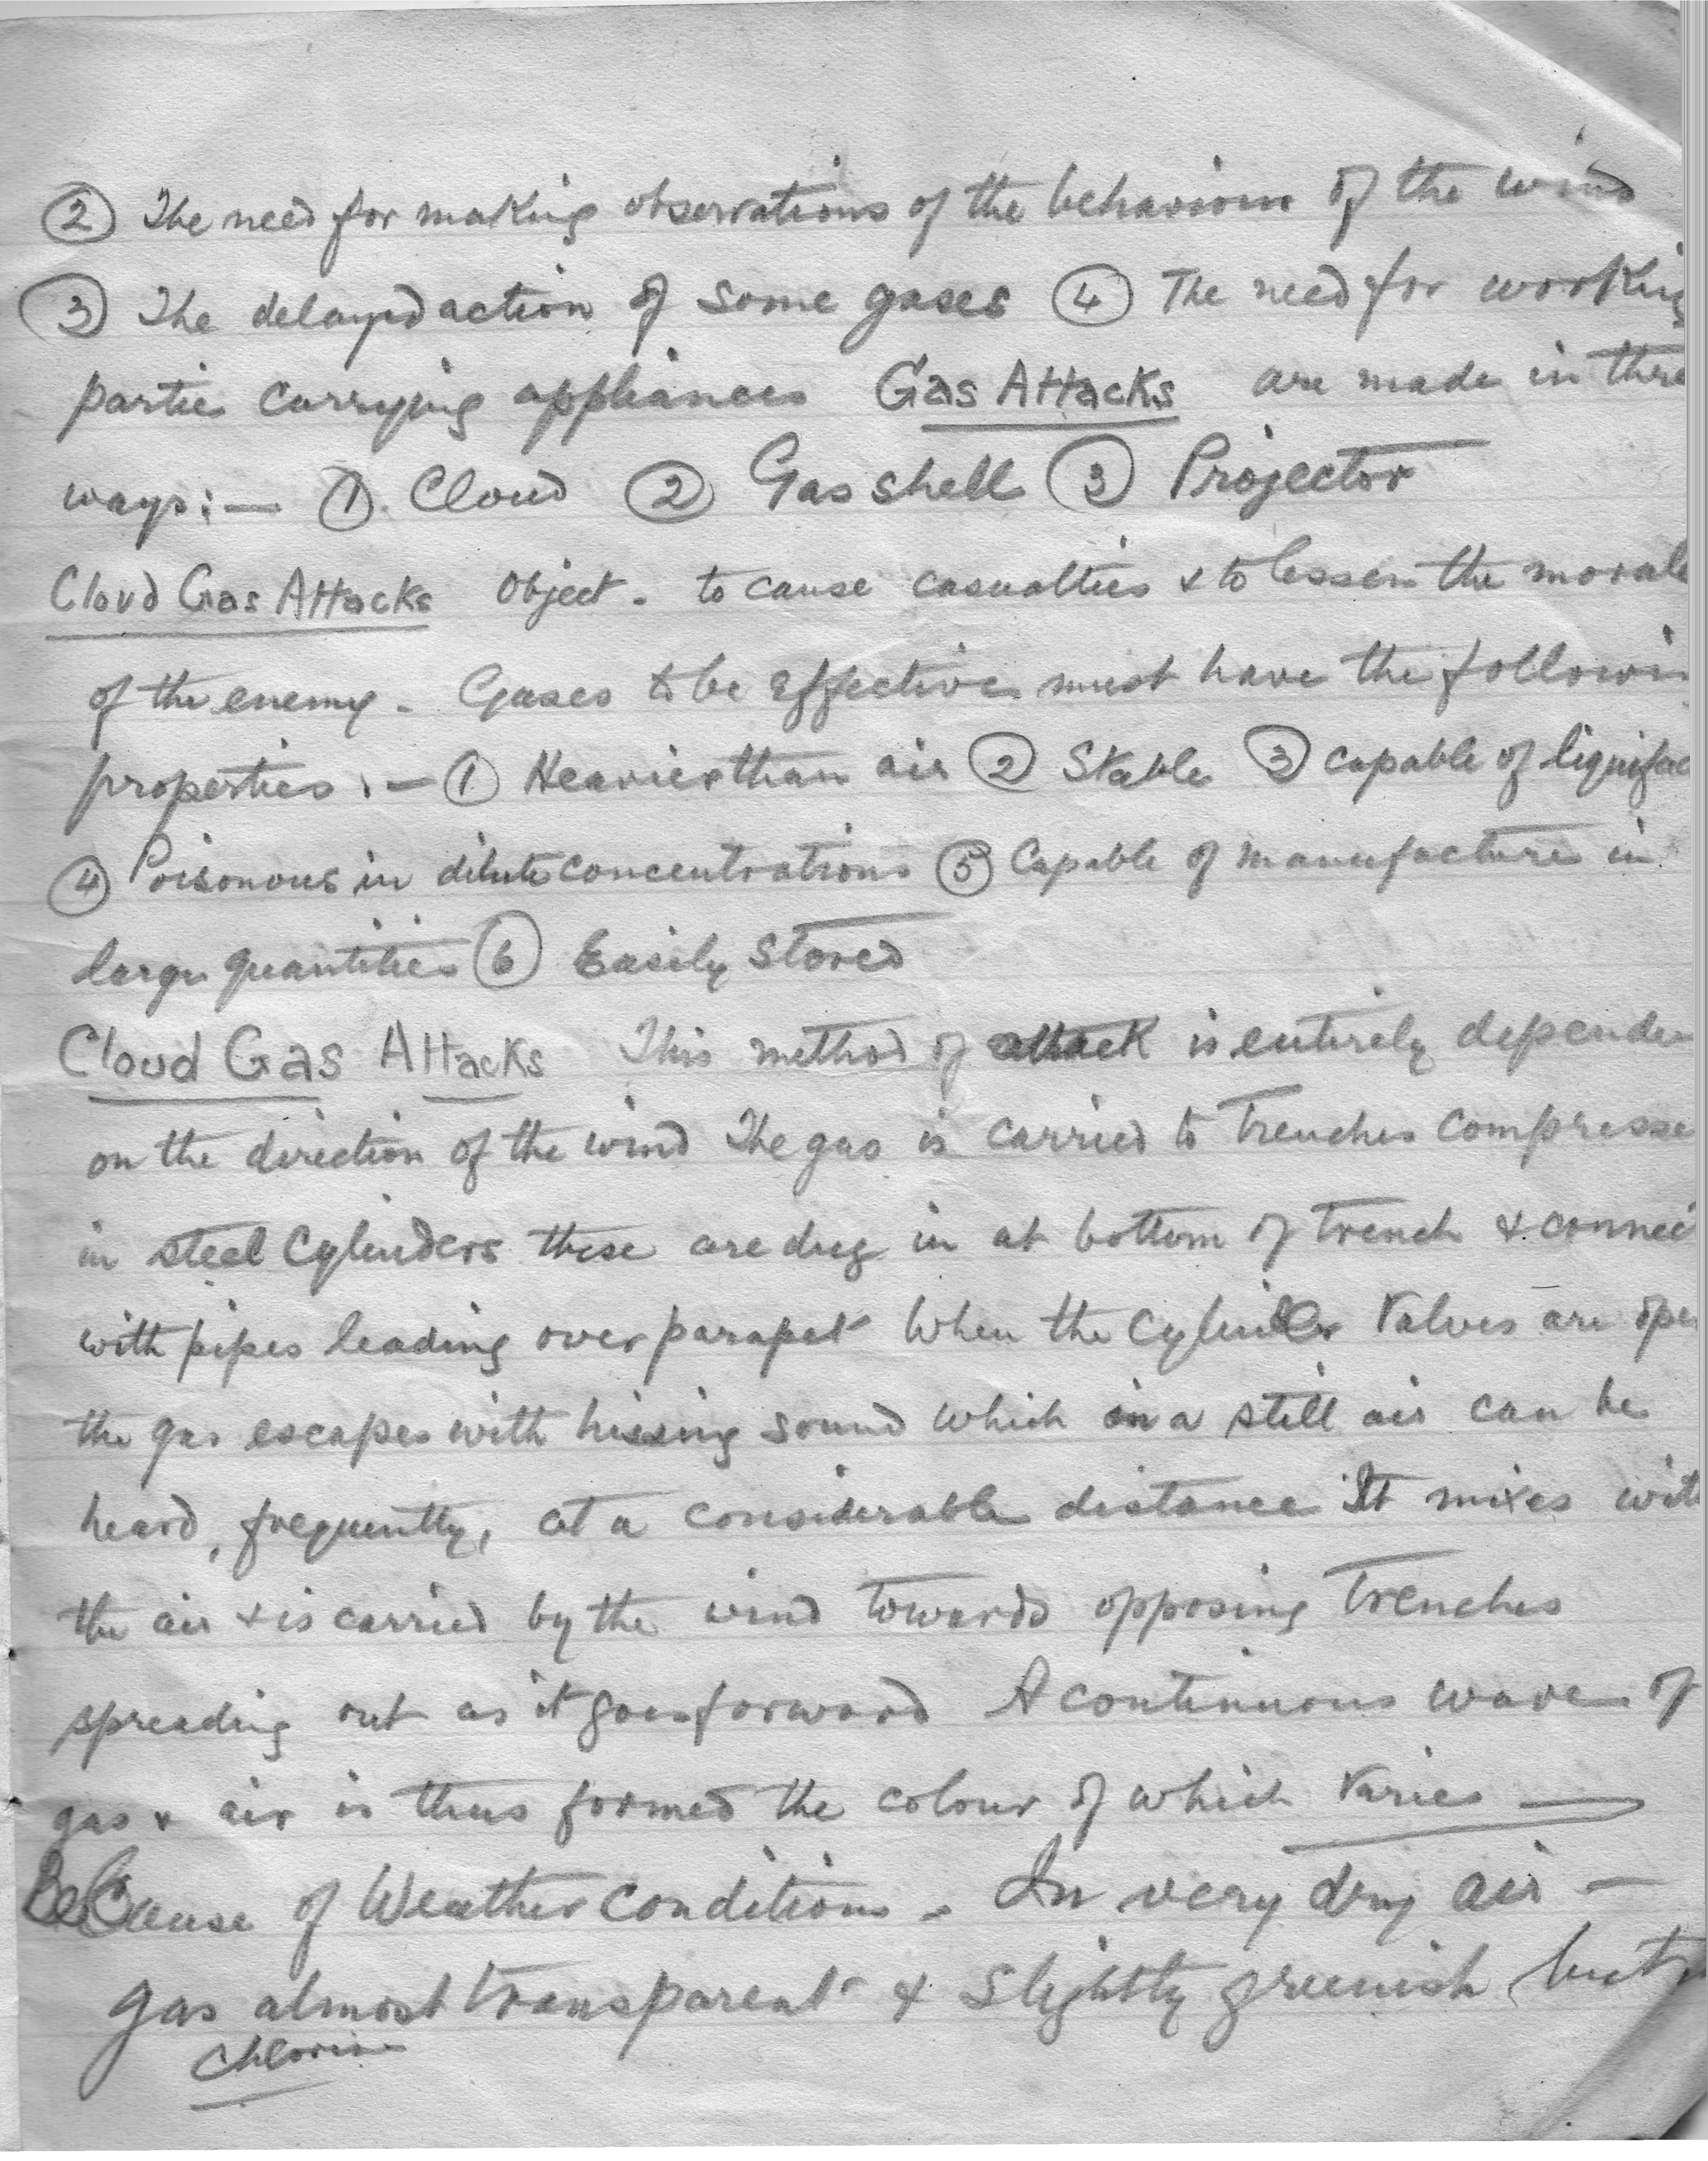 ② The need for making observations of the behaviour of the wind
③ The delayed action of some gases ④ The need for working
parties carrying appliances Gas Attacks are made in thre
ways:— ①. Cloud ② Gas shell ③ Projector
Cloud Gas Attacks Object - to cause casualties & to lessen the morale
of the enemy - Gases to be effective must have the followin
properties :- ① Heavier than air ② Stable ③ capable of liquifac
④ Poisonous in dilute concentrations ⑤ Capable of manufacture in
large quantities ⑥ Easily Stored
Cloud Gas Attacks This method of attack is entirely depende
on the direction of the wind The gas is carried to trenches compresse
in steel Cylinders these are dug in at bottom of trench & connec
with pipes leading over parapet When the Cylinder Valves are ope
the gas escapes with hissing sound which in a still air can be
heard, frequently, at a considerable distance It mixes wit
the air & is carried by the wind towards opposing trenches
spreading out as it goes forward A continuous wave of
gas & air is thus formed the colour of which varies —
Because of Weather conditions - In very dry air —
gas almost transparent & slightly greenish but
Chlorine